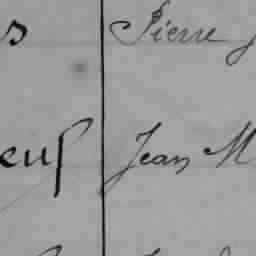 s Pierre J
euf Jean M